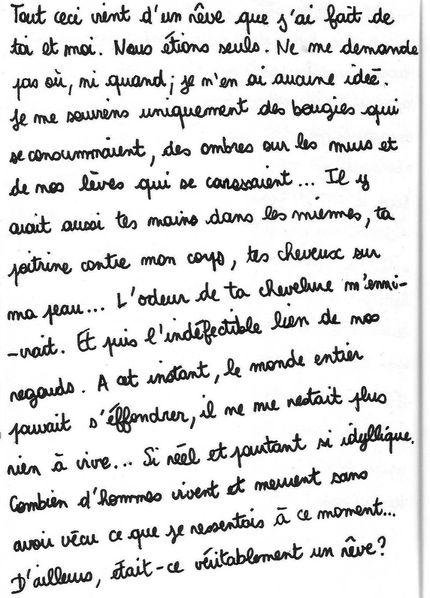 Tout ceci vient d'un rêve que j'ai fait de
toi et moi. Nous étions seuls. Ne me demande
pas où, ni quand ; je n'en ai aucune idée.
Je me souviens uniquement des bougies qui
se consummaient, des ombres sur les murs et
de nos lèvres qui se caressaient... Il y
avait aussi tes mains dans les miennes, ta
poitrine contre mon corps, tes cheveux sur
ma peau... L'odeur de ta chevelure m'enni-
-vrait. Et puis l'indéfectible lien de nos
regards. A cet instant, le monde entier
pouvait s'éffondrer, il ne me restait plus
rien à vivre... Si réel et pourtant si idyllique.
Combien d'hommes vivent et meurent sans
avoir vécu ce que je ressentais à ce moment...
D'ailleurs, était-ce véritablement un rêve ?